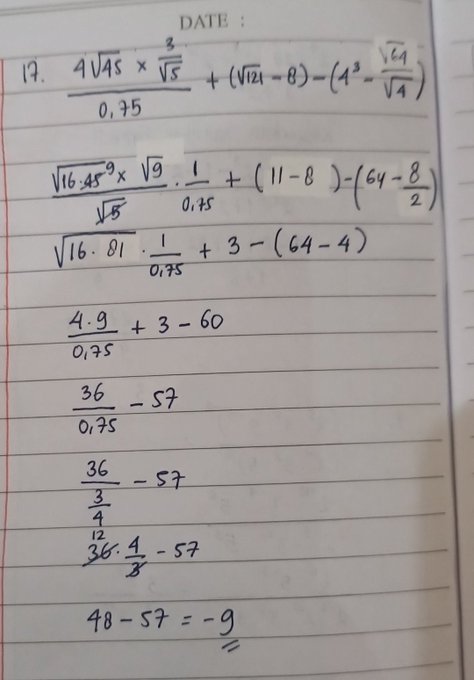 DATE :
17. (4√45 × 3/√5)/0,75 + (√121 - 8) - (4³ - √64/√4)
(√16·45⁹ × √9)/√5 · 1/0,75 + (11 - 8) - (64 - 8/2)
√16·81 · 1/0,75 + 3 - (64 - 4)
4·9/0,75 + 3 - 60
36/0,75 - 57
36/(3/4) - 57
12
36 · 4/3 - 57
48 - 57 = -9